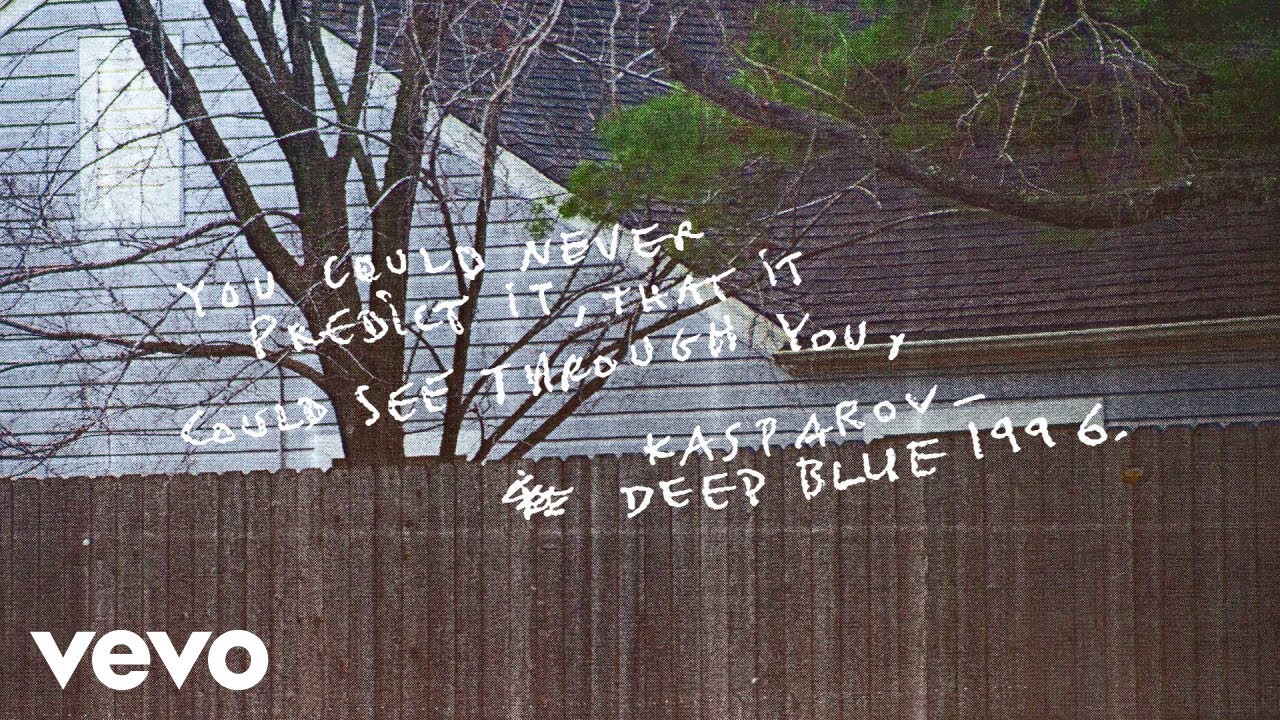 YOU COULD NEVER
PREDICT IT, THAT IT
COULD SEE THROUGH YOU,
KASPAROV—
DEEP BLUE 1996.
vevo